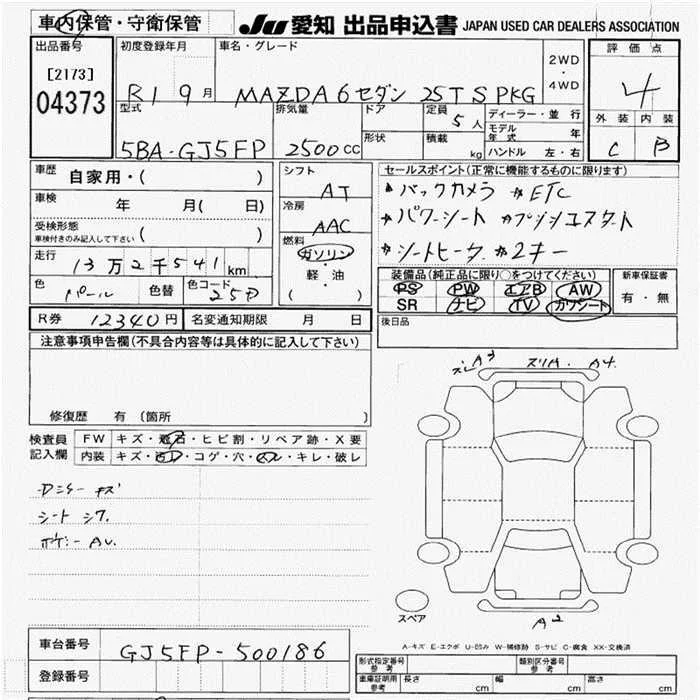 車内保管・守衛保管
JU 愛知 出品申込書 JAPAN USED CAR DEALERS ASSOCIATION
出品番号
[2173]
04373
初度登録年月
R1 9月
車名・グレード
MAZDA6 セダン 25T S PKG
2WD
・
4WD
評価点
4
外装 内装
C B
型式
5BA-GJ5FP
排気量
2500cc
ドア
形状
定員
5人
積載
kg
ディーラー・並行
モデル年式 年
ハンドル 左・右
車歴
自家用・( )
車検
年 月( 日)
受検形態
車検付きのみ記入して下さい ( )
走行
13万2千541km
色
パール
色替
色コード
25D
シフト
AT
冷房
AAC
燃料
ガソリン
・
軽・油
( )
セールスポイント(正常に機能するものに限ります)
バックカメラ ETC
パワーシート プッシュスタート
シートヒータ 2キー
装備品(純正品に限り○をつけてください)
PS PW エアB AW
SR ナビ TV カワシート
新車保証書
有・無
後日品
R券 12340円 名変通知期限 月 日
注意事項申告欄(不具合内容等は具体的に記入して下さい)
修復歴 有 (箇所 )
検査員
記入欄
FW キズ・飛石・ヒビ割・リペア跡・X要
内装 キズ・汚レ・コゲ・穴・スレ・キレ・破レ
シート シワ
スレ A3 スリA. A4.
A2
スペア
A-キズ E-エクボ U-凹み W-補修跡 S-サビ C-腐食 XX-交換済
車台番号
GJ5FP-500186
登録番号
形式指定番号
参考
類別区分番号
参考
車庫証明用
参考
長さ cm 幅 cm 高さ cm